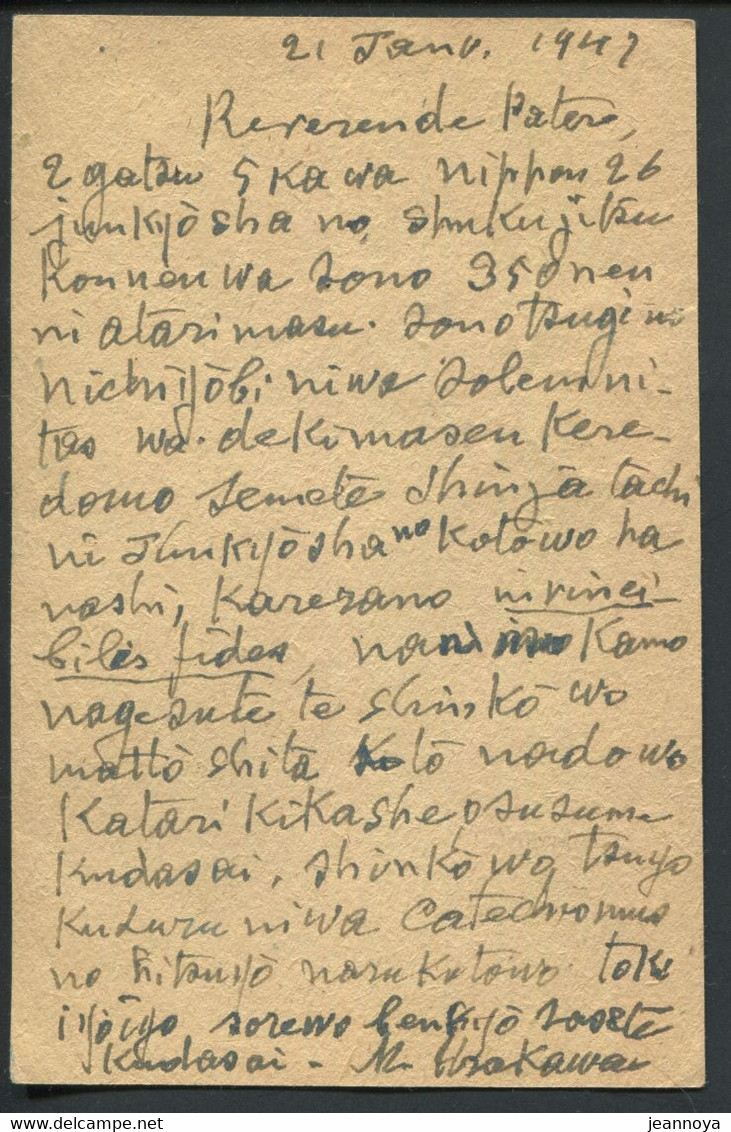 21 Janv. 1947
Reverende Pater,
2 gatsu 5 ka wa nippon 26
junkyōsha no shukujitsu
Konnen wa sono 350 nen
ni atarimasu. sono tsugi no
nichiyōbi ni wa solemni-
tas wa dekimasen kere-
domo semete shinja tachi
ni Junkyōsha no koto wo ha
nashi, Karera no invinci-
bilis fides, nani mo kamo
nagesute te shinkō wo
mattō shita koto nado wo
Katari kikashe, o susume
kudasai. shinkō wo tsuyo
ku suru ni wa Catechismus
no hitsuyō naru koto wo toki
iyōiyo sore wo benkyō sasete
kudasai - M. Urakawa
jeannoya